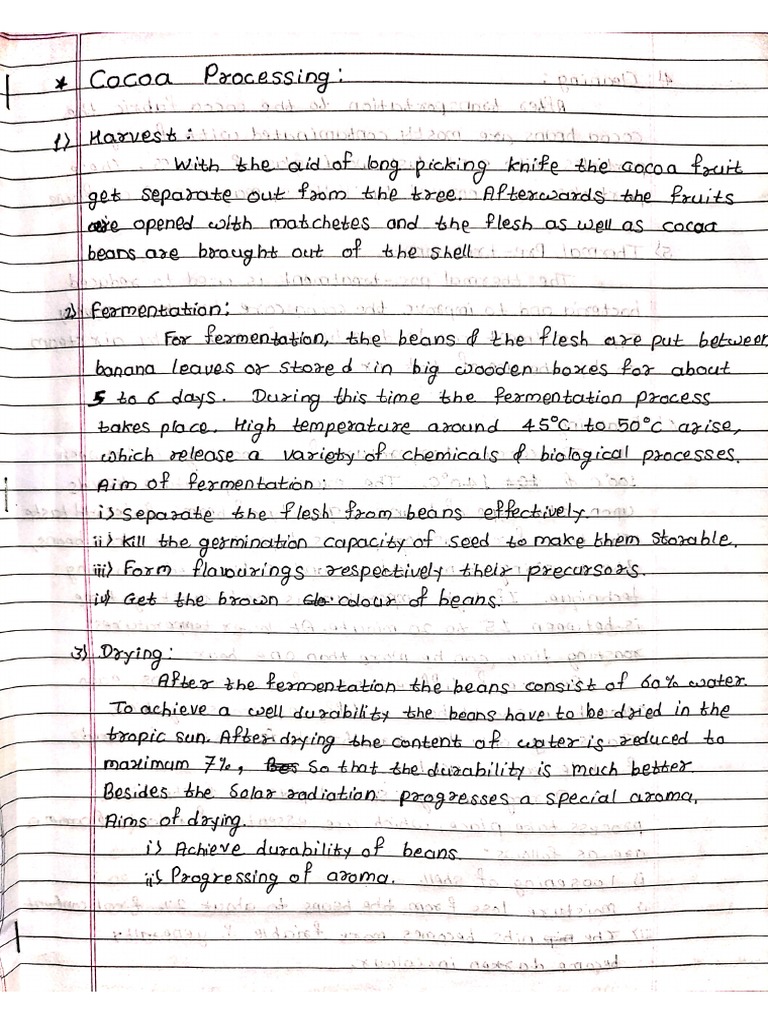 * Cocoa Processing:
1) Harvest:
With the aid of long picking knife the cocoa fruit
get separate out from the tree. Afterwards the fruits
are opened with matchetes and the flesh as well as cocoa
beans are brought out of the shell.
2) Fermentation:
For fermentation, the beans & the flesh are put between
banana leaves or stored in big wooden boxes for about
5 to 6 days. During this time the fermentation process
takes place. High temperature around 45°C to 50°C arise,
which release a variety of chemicals & biological processes.
Aim of fermentation:
i) Separate the flesh from beans effectively.
ii) Kill the germination capacity of seed to make them storable.
iii) Form flavourings respectively their precursors.
iv) Get the brown colour of beans.
3) Drying:
After the fermentation the beans consist of 60% water.
To achieve a well durability the beans have to be dried in the
tropic sun. After drying the content of water is reduced to
maximum 7%, So that the durability is much better.
Besides the Solar radiation progresses a special aroma.
Aims of drying.
i) Achieve durability of beans.
ii) Progressing of aroma.